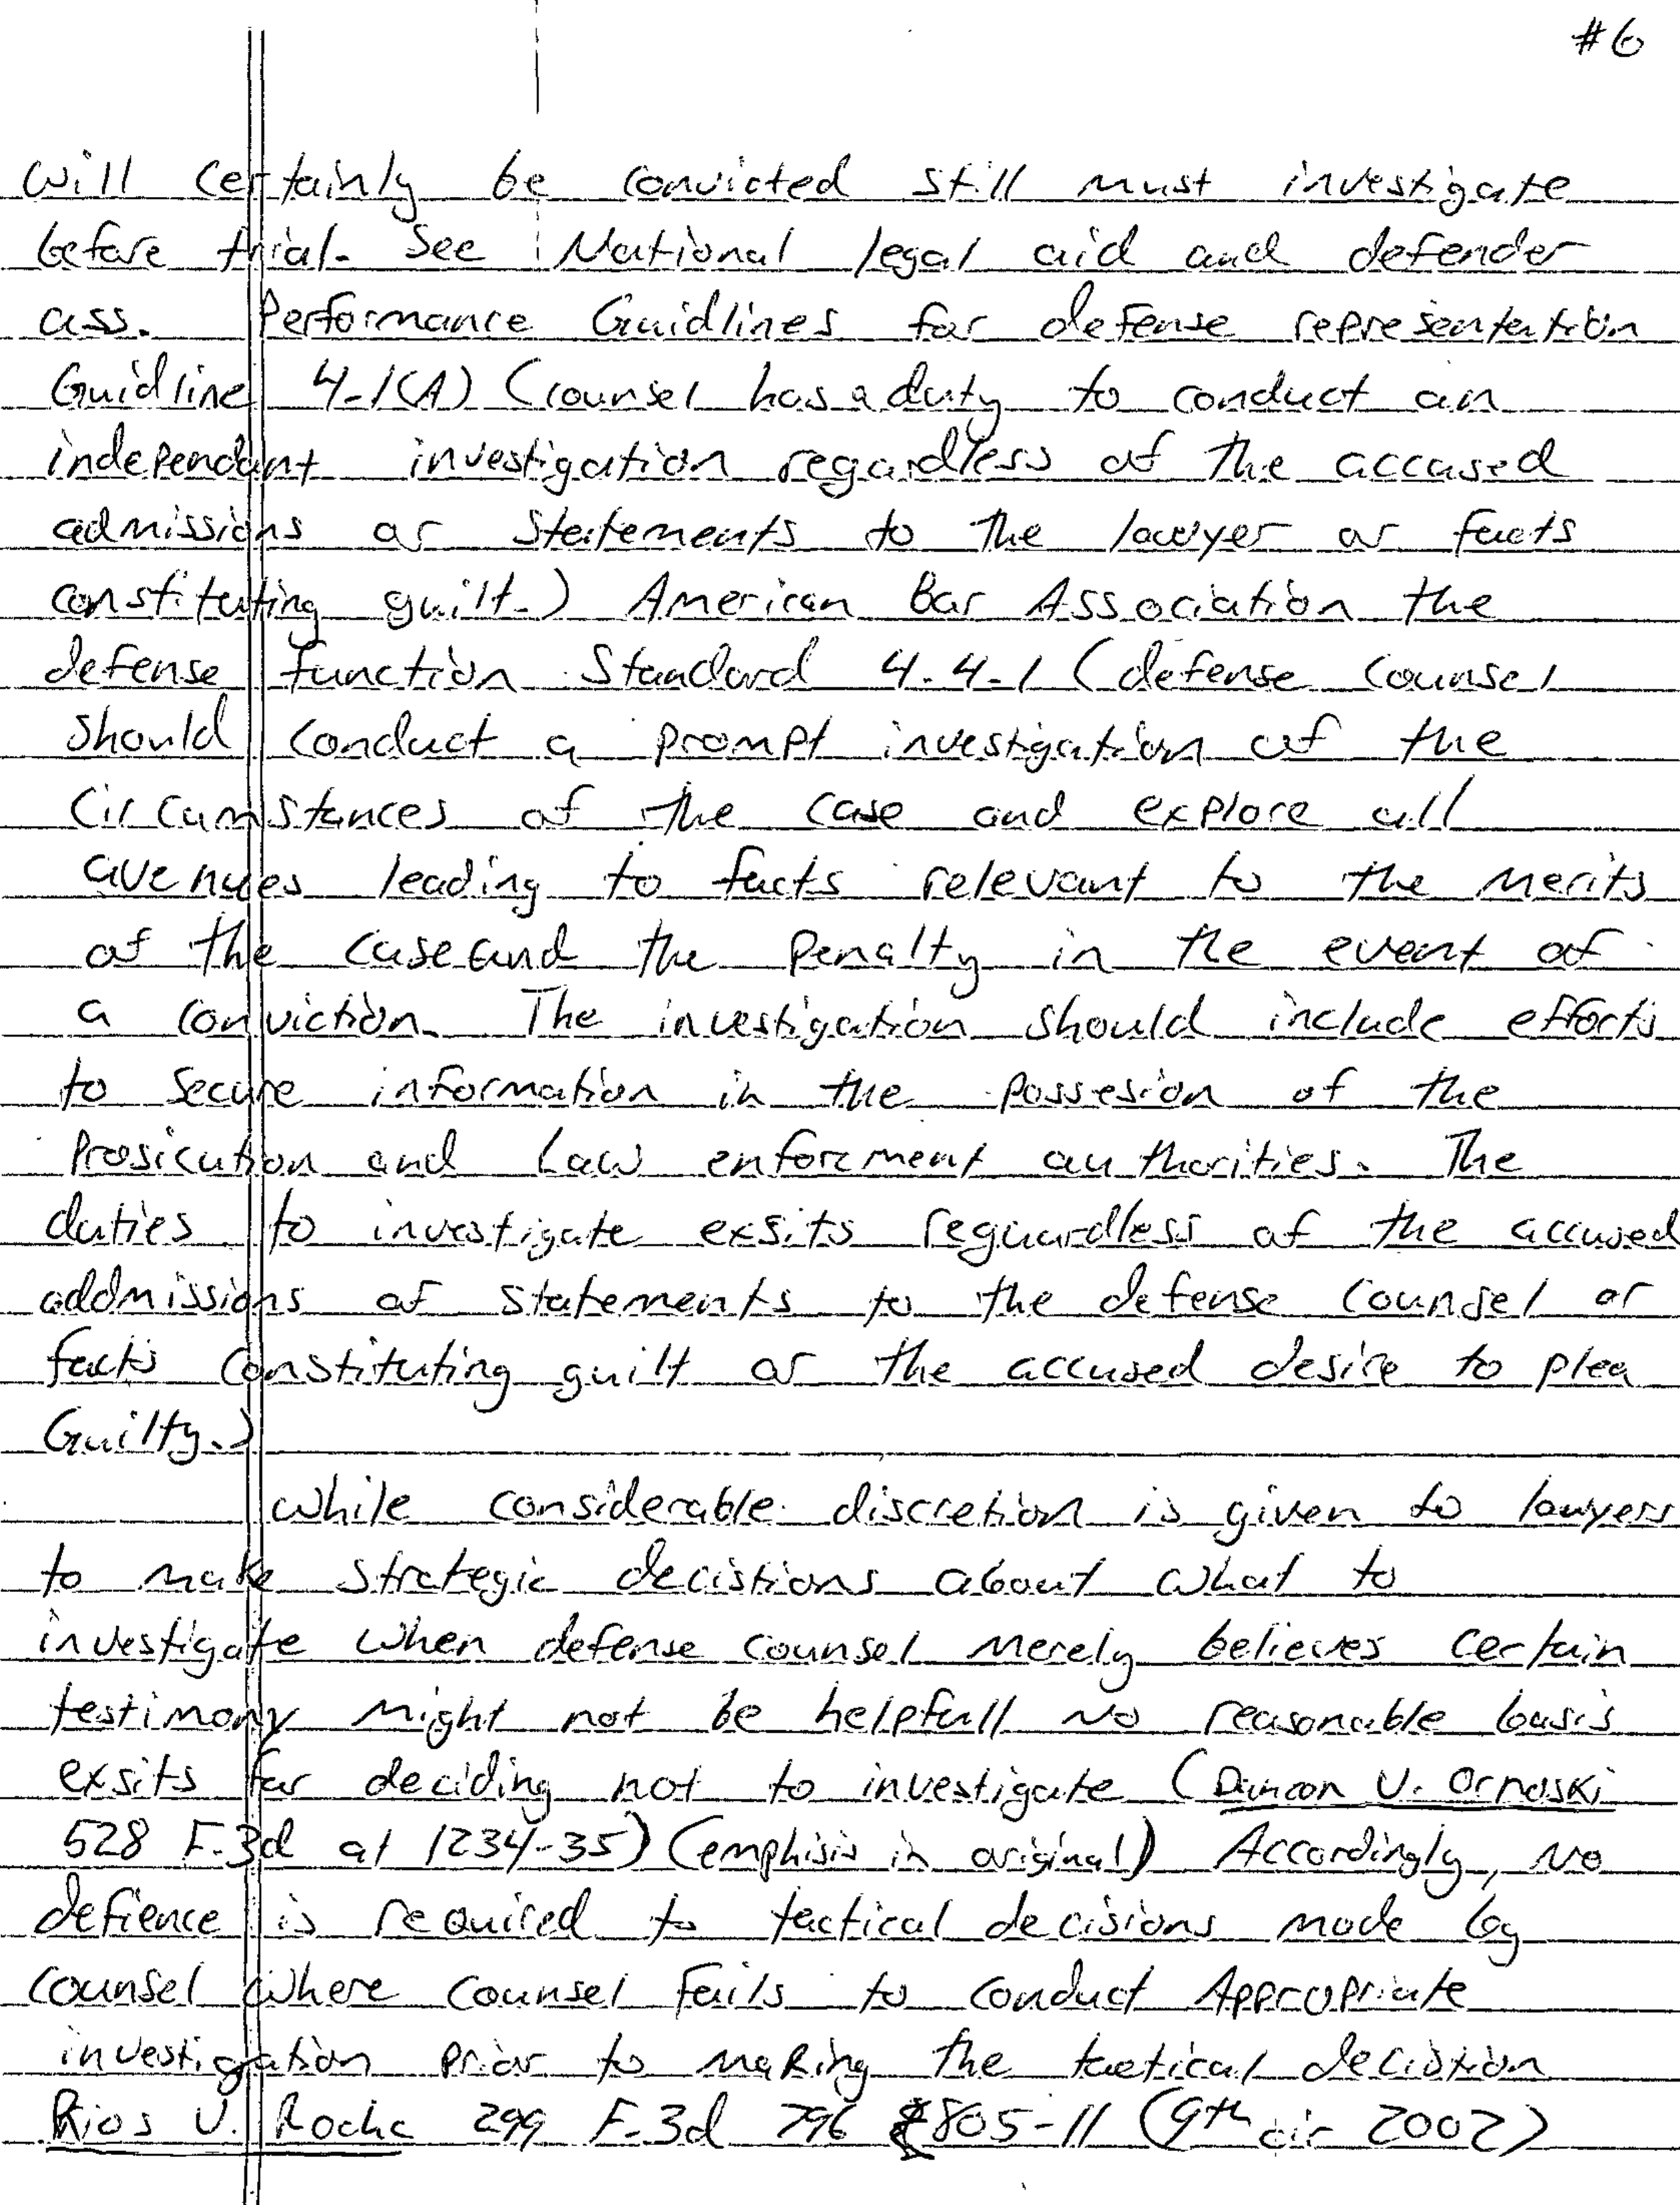 #6
will certainly be convicted still must investigate
before trial. See National legal aid and defender
ass. Performance Guidlines for defense representation
Guidline 4-1(A) (counsel has a duty to conduct an
independant investigation regardless of the accused
admissions or statements to the lawyer or facts
constituting guilt.) American Bar Association the
defense function Standard 4.4.1 (defense counsel
should conduct a prompt investigation of the
circumstances of the case and explore all
avenues leading to facts relevant to the merits
of the case and the penalty in the event of
a conviction. The investigation should include efforts
to secure information in the possesion of the
prosicution and Law enforcment authorities. The
duties to investigate exsits reguardless of the accused
addmissions of statements to the defense counsel or
facts constituting guilt or the accused desire to plea
Guilty.)
while considerable discretion is given to lawyers
to make strategic decistions about what to
investigate when defense counsel merely believes certain
testimony might not be helpfull no reasonable basis
exsits for deciding not to investigate (Duncan v. Ornoski
528 F.3d at 1234-35) (emphisis in original) Accordingly, no
defience is required to tactical decisions made by
counsel where counsel fails to conduct Appropriate
investigation prior to making the tactical decistion
Rios v. Rocha 299 F.3d 796 805-11 (9th cir 2002)